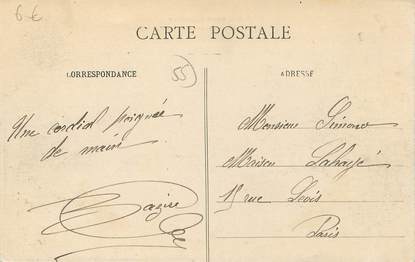 6 €
CARTE POSTALE
55
CORRESPONDANCE
ADRESSE
Une cordial poignée
de main
Monsieur Simono
Maison Lahayé
15 rue Lévis
Paris